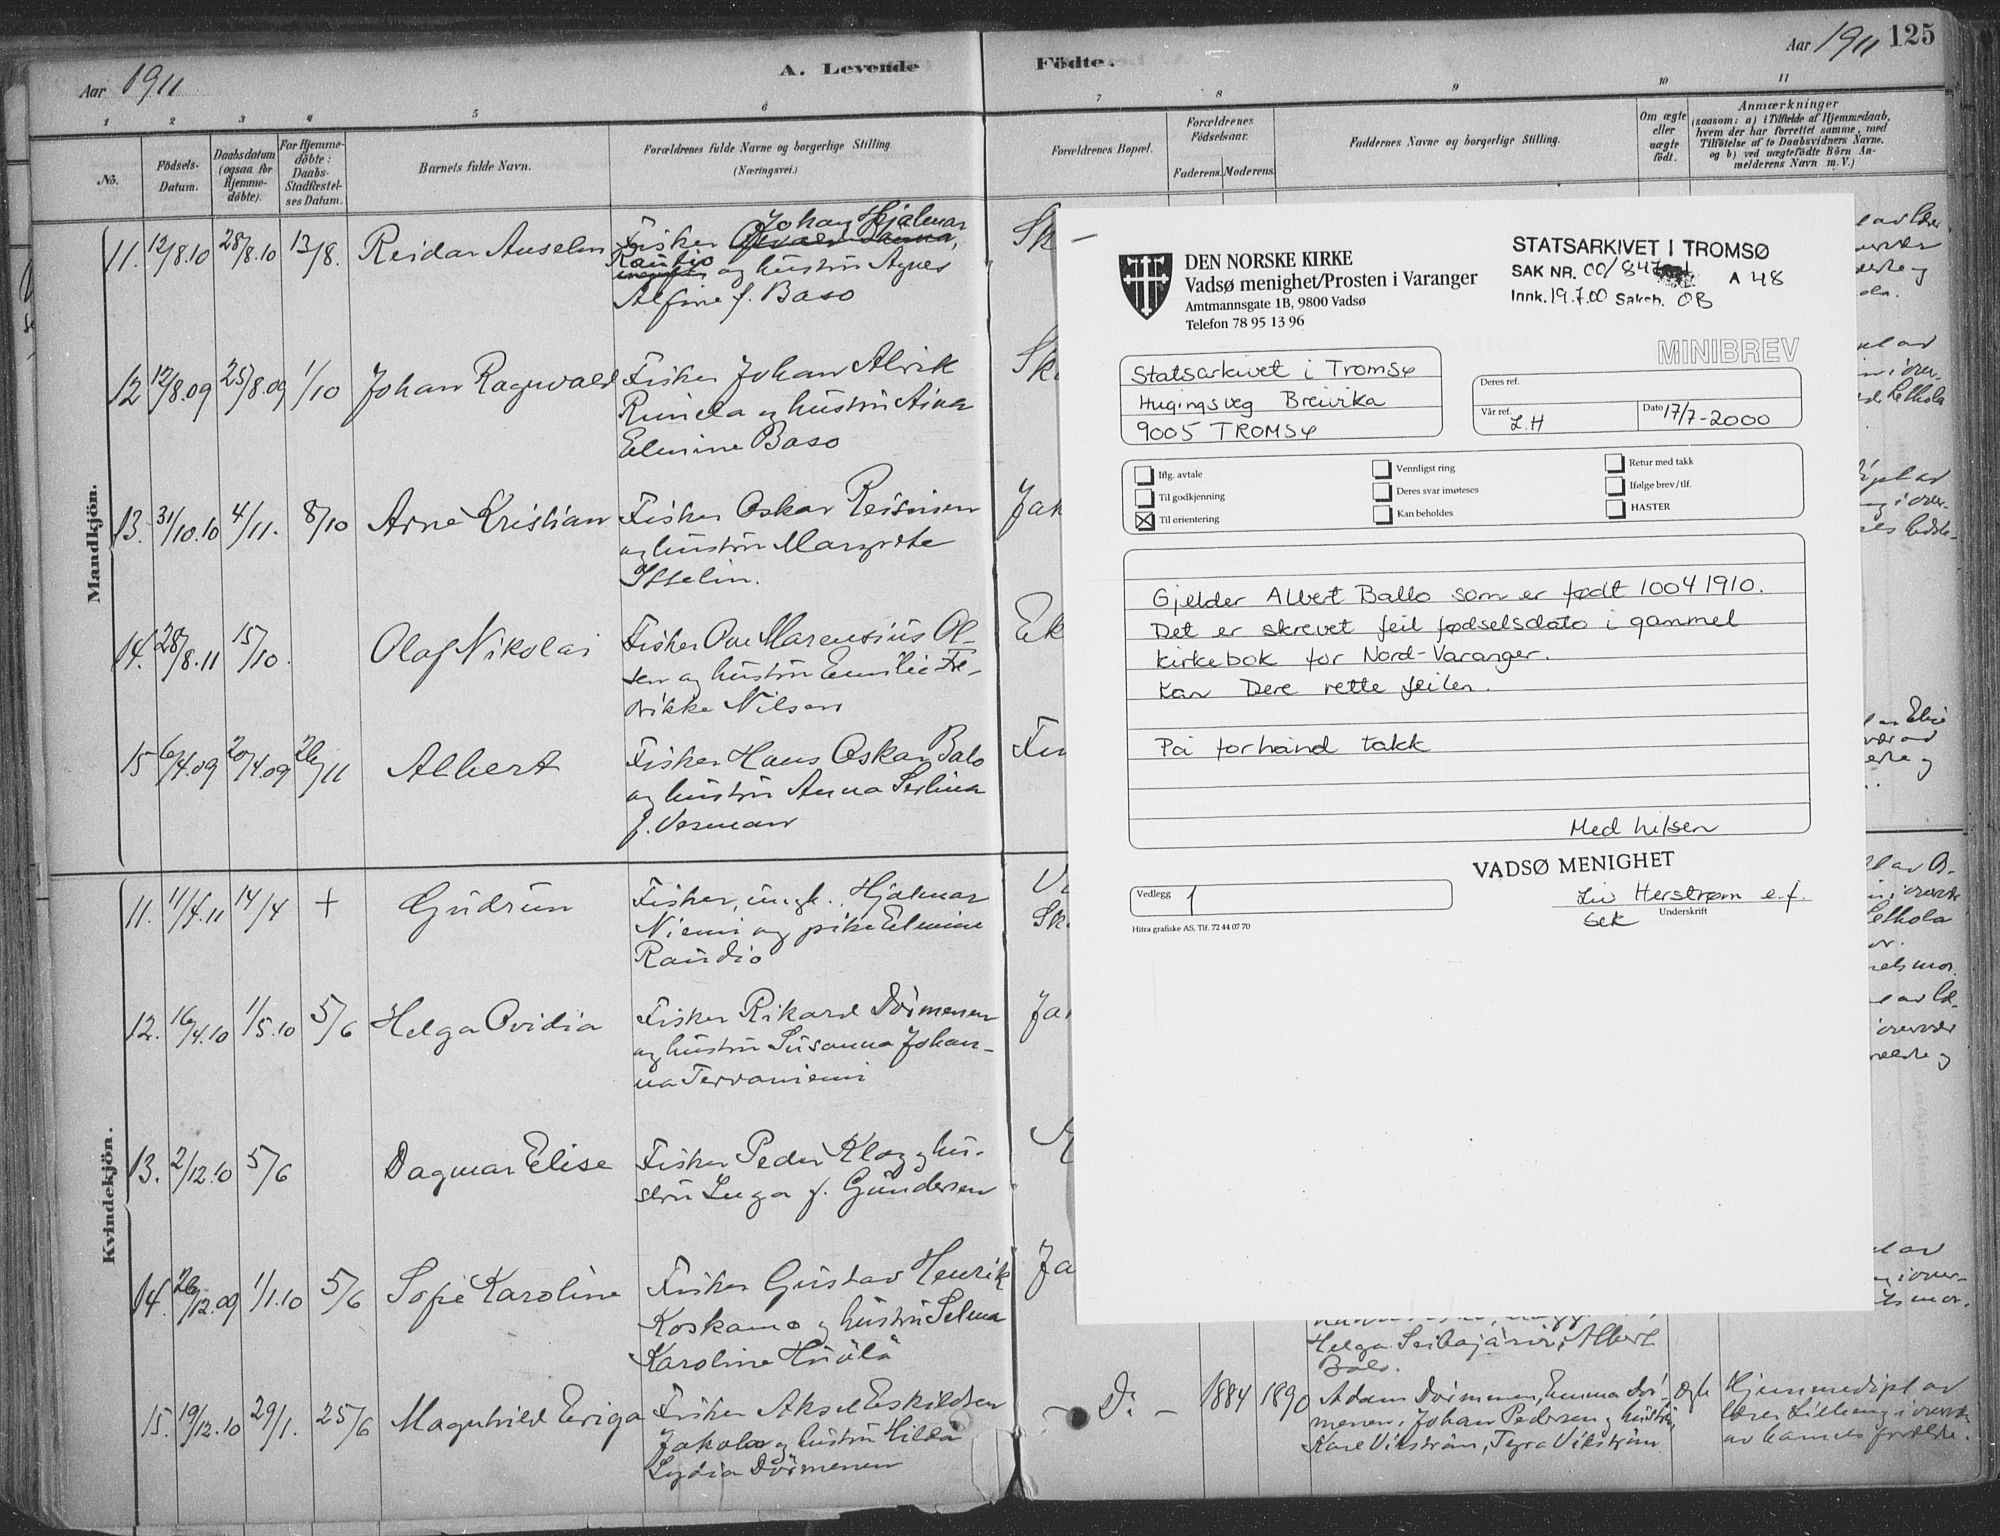 Aar 1911
A. Levende
Födte.
Aar 1911 125
1 2 3 4 5 6 7 8 9 10 11
No.
Födsels-
Datum.
Daabsdatum
(ogsaa for
Hjemme-
döbte).
For Hjemme-
döbte:
Daabs-
Stadfæstel-
ses Datum.
Barnets fulde Navn.
Forældrenes fulde Navne og borgerlige Stilling.
(Næringsvei.)
Forældrenes Bopæl.
Forældrenes
Födselsaar.
Faderens.
Moderens.
Faddernes Navne og borgerlige Stilling.
Om ægte
eller
uægte
födt.
Anmærkninger
(saasom: a) i Tilfælde af Hjemmedaab,
hvem der har forrettet samme, med
Tilföielse af to Daabsvidners Navne.
og b) ved uægtefödte Börn An-
melderens Navn m. V.)
Mandkjön.
11. 12/8.10 28/8.10 13/8. Reidar Anselm Fisker Johan Hjalmar
Rautio og hustru Agnes
Alfine f. Baso
12 12/8.09 25/8.09 1/10 Johan Ragnvald Fisker Johan Alrik
og hustru Aina
Elmine Baso
13. 31/10.10 4/11. 8/10 Arne Kristian Fisker Oskar
og hustru Margrete
14. 28/8.11 15/10. Olaf Nikolai Fisker Ove Marensius Ol-
sen og hustru Emilie Fre-
drikke Nilsen
15 6/4.09 20/4.09 26/11 Albert Fisker Hans Oskar Balo
og hustru Anna Serlina
f. Vesman
Kvindekjön.
11. 11/4.11 14/4 + Gudrun Fisker, ungk., Hjalmar
Niemi og pike Elmine
Raudio
12. 16/4.10 1/5.10 5/6 Helga Ovidia Fisker Rikard Dörmenen
og hustru Susanna Johan-
na Tervaniemi
13. 2/12.10 5/6 Dagmar Elise Fisker Peder Klog og hu-
stru Inga f. Gundersen
14. 26/12.09 1/1.10 5/6 Sofie Karoline Fisker Gustav Henrik
Koskamo og hustru Selma
Karoline Huölä
Helga Seibajärvi, Albert
Balo.
15. 19/12.10 29/1. 25/6 Magnhild Eriga Fisker Aksel Eskildsen
Jakola og hustru Hilda
Lydia Dörmenen
– D. – 1884 1890 Adam Dörmenen, Emma Dör-
menen, Johan Pedersen og hustru,
Karl Vikström, Tyra Vikström
ægte
Hjemmedöpt av
lærer Lilleeng i overvær
av barnets forældre.
DEN NORSKE KIRKE
Vadsø menighet/Prosten i Varanger
Amtmannsgate 1B, 9800 Vadsø
Telefon 78 95 13 96
STATSARKIVET I TROMSØ
SAK NR. 00/847 A 48
Innk. 19.7.00 Sakbh. OB
MINIBREV
Statsarkivet i Tromsø
Hugingsveg Breivika
9005 TROMSø
Deres ref.
Vår ref. L.H
Dato 17/7-2000
Iflg. avtale
Til godkjenning
Til orientering
Vennligst ring
Deres svar imøteses
Kan beholdes
Retur med takk
Ifølge brev/tlf.
HASTER
Gjelder Albert Ballo som er født 10041910.
Det er skrevet feil fødselsdato i gammel
kirkebok for Nord-Varanger.
Kan Dere rette feilen.
På forhånd takk
Med hilsen
VADSØ MENIGHET
Vedlegg 1
Liv Herstrøm e.f.
sek
Underskrift
Hitra grafiske AS, Tlf. 72 44 07 70